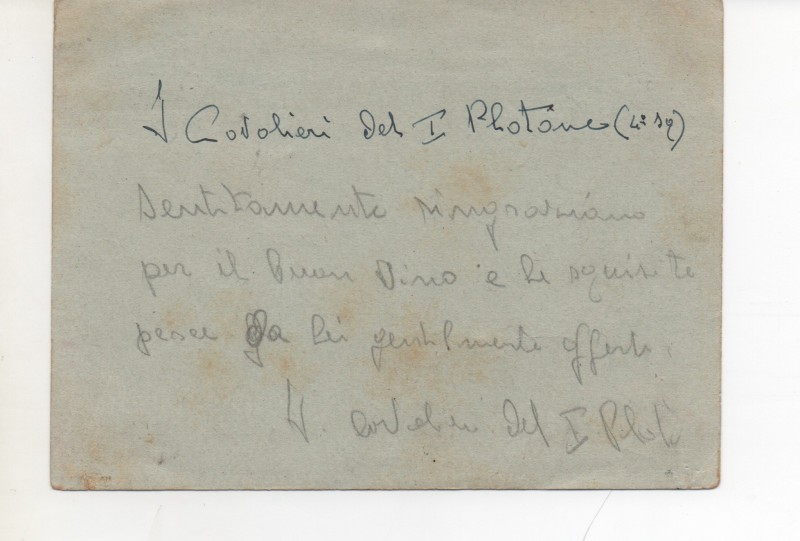 I Cavalieri del I Plotone (4° Sq)
Sentitamente ringraziano
per il buon vino e le squisite
pesce da lei gentilmente offerti.
I Cavalieri del I Ploto